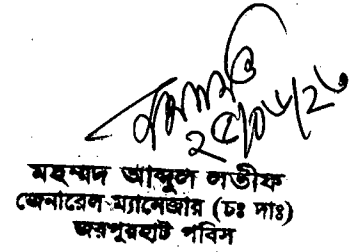 ২৫/০৬/২৬
মহম্মদ আব্দুল লতীফ
জেনারেল ম্যানেজার (চঃ দাঃ)
জয়পুরহাট পবিস